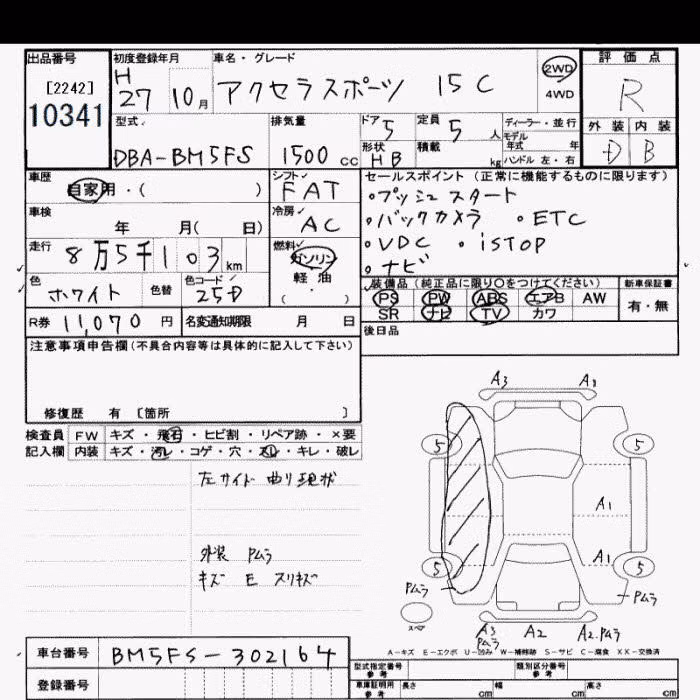 出品番号
[2242]
10341
初度登録年月
H
27 10月
車名・グレード
アクセラスポーツ 15C
2WD
4WD
評価点
R
型式
DBA-BM5FS
排気量
1500 cc
ドア 5
形状 HB
定員 5 人
積載 kg
ディーラー・並行
モデル
年式 年
ハンドル 左・右
外装 内装
D B
車歴
自家用・( )
シフト
FAT
セールスポイント(正常に機能するものに限ります)
・プッシュスタート
・バックカメラ ・ETC
・VDC ・iSTOP
・ナビ
車検
年 月( 日)
冷房
AC
走行
8万5千103km
燃料
ガソリン
軽油
( ・ )
色
ホワイト
色替
色コード
25D
装備品(純正品に限り○をつけてください)
PS PW ABS エアB AW
SR ナビ TV カワ
新車保証書
有・無
R券 11,070 円
名変通知期限 月 日
後日品
注意事項申告欄(不具合内容等は具体的に記入して下さい)
修復歴 有 [箇所 ]
検査員 FW キズ・飛石・ヒビ割・リペア跡・×要
記入欄 内装 キズ・汚レ・コゲ・穴・スレ・キレ・破レ
左サイド 曲り現状
外装 Pムラ
キズ E スリキズ
A3
5 5
A1
A1
5 5
Pムラ
Pムラ
スペア
A3
Pムラ
A2
A2.Pムラ
A-キズ E-エクボ U-凹み W-補修跡 S-サビ C-腐食 XX-交換済
車台番号 BM5FS-302164
登録番号
型式指定番号
参考
類別区分番号
参考
車庫証明用
参考
長さ cm 幅 cm 高さ cm